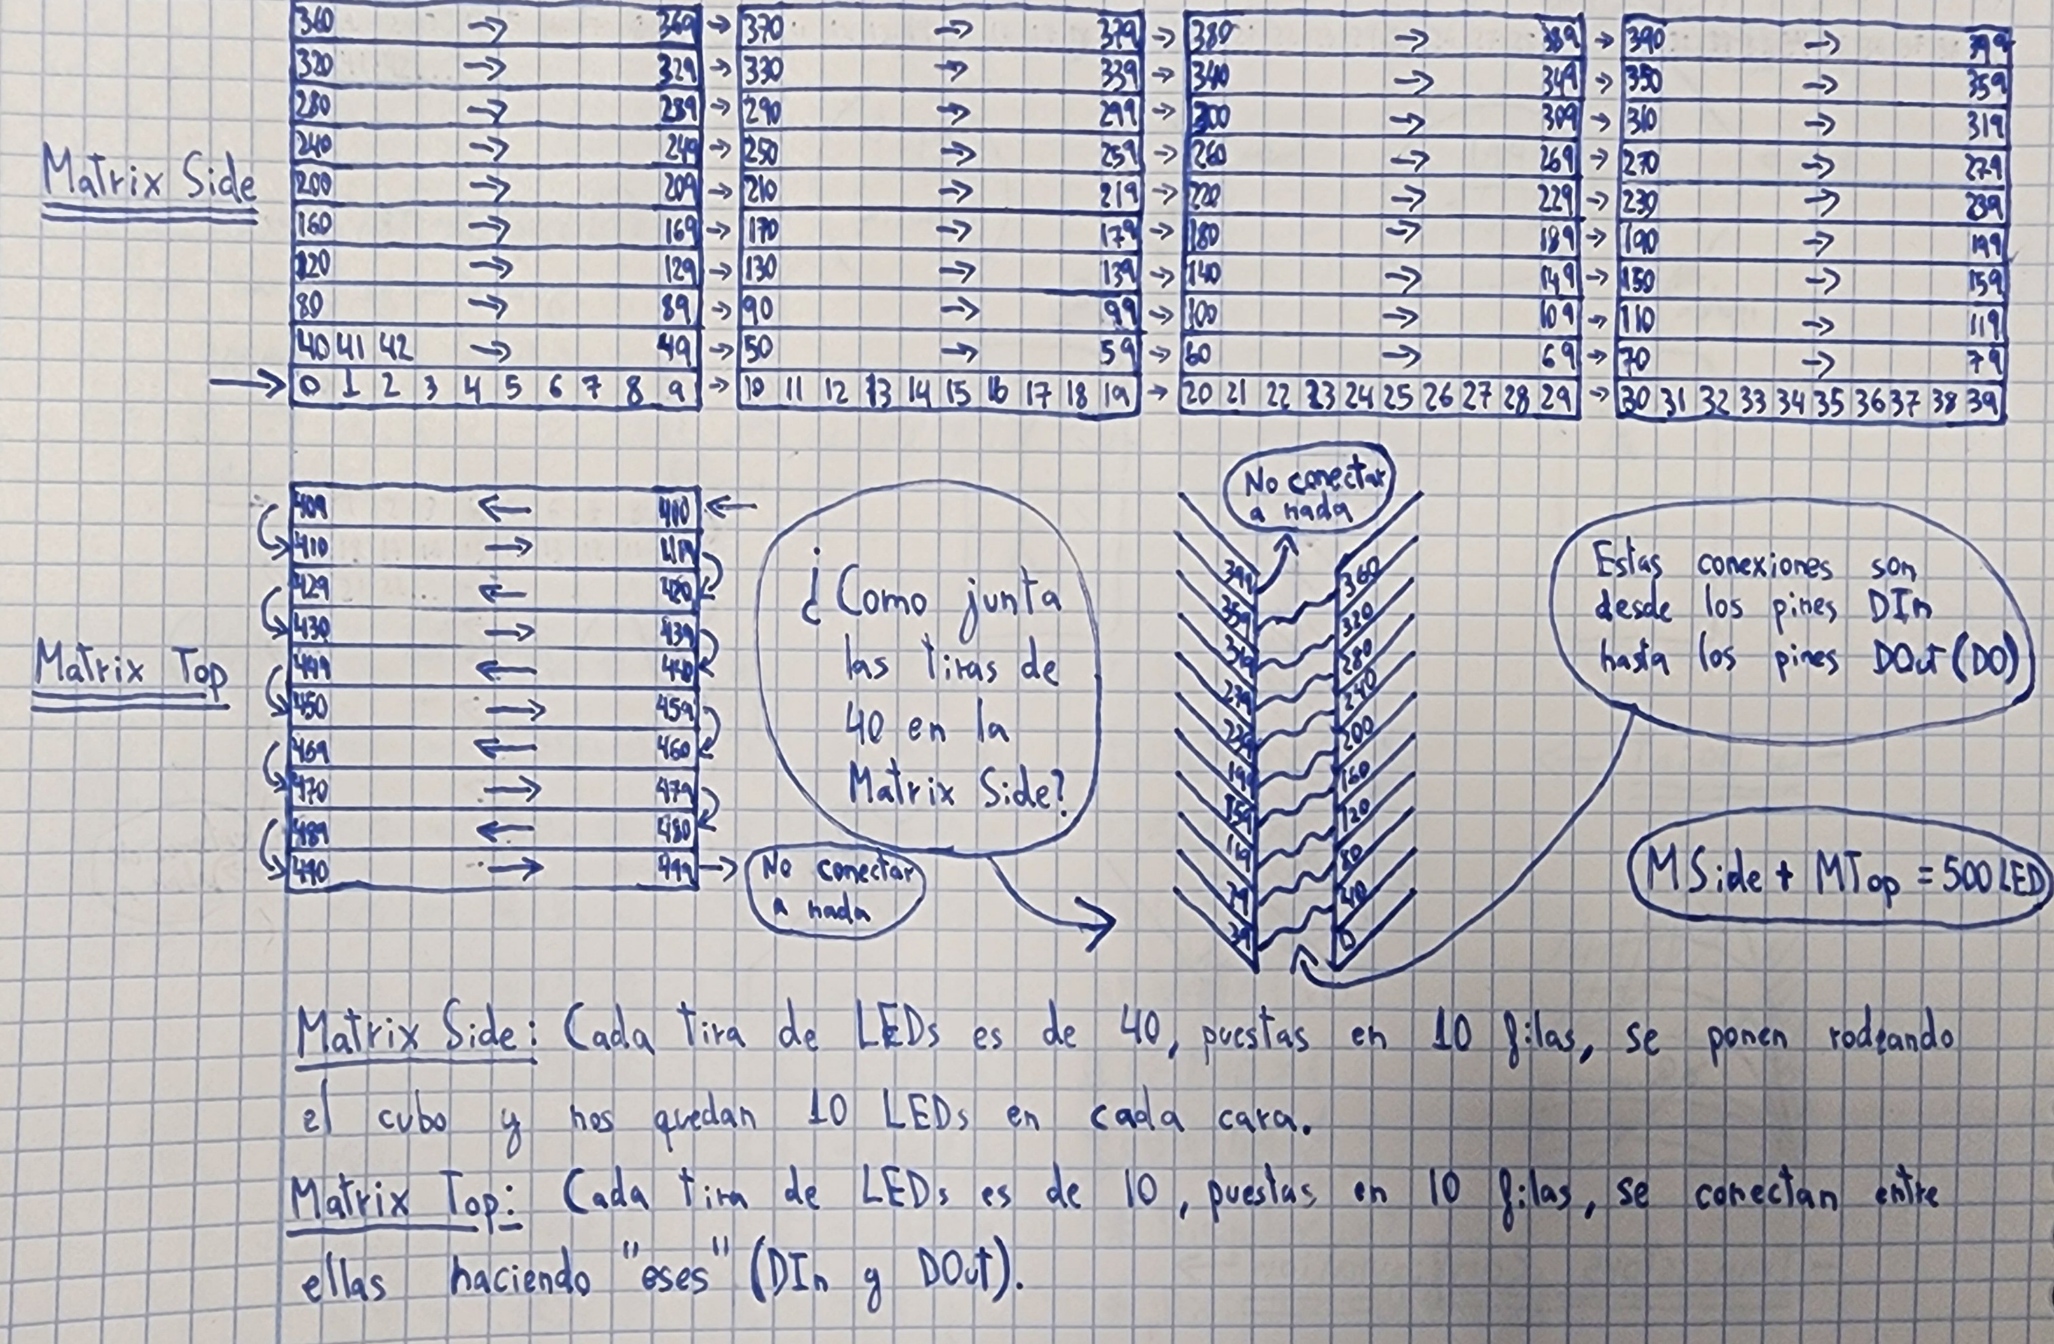 Matrix Side
360 → 369 → 370 → 379 → 380 → 389 → 390 → 399
320 → 329 → 330 → 339 → 340 → 349 → 350 → 359
280 → 289 → 290 → 299 → 300 → 309 → 310 → 319
240 → 249 → 250 → 259 → 260 → 269 → 270 → 279
200 → 209 → 210 → 219 → 220 → 229 → 230 → 239
160 → 169 → 170 → 179 → 180 → 189 → 190 → 199
120 → 129 → 130 → 139 → 140 → 149 → 150 → 159
80 → 89 → 90 → 99 → 100 → 109 → 110 → 119
40 41 42 → 49 → 50 → 59 → 60 → 69 → 70 → 79
→ 0 1 2 3 4 5 6 7 8 9 → 10 11 12 13 14 15 16 17 18 19 → 20 21 22 23 24 25 26 27 28 29 → 30 31 32 33 34 35 36 37 38 39
Matrix Top
409 ← 400 ←
410 → 419
429 ← 420
430 → 439
449 ← 440
450 → 459
469 ← 460
470 → 479
489 ← 480
490 → 499 →
No conectar
a nada
¿Como junta
las tiras de
40 en la
Matrix Side?
No conectar
a nada
399 360
359 320
319 280
279 240
239 200
199 160
159 120
119 80
79 40
39 0
Estas conexiones son
desde los pines DIn
hasta los pines DOut (DO)
MSide + MTop = 500 LED
Matrix Side: Cada tira de LEDs es de 40, puestas en 10 filas, se ponen rodeando
el cubo y nos quedan 10 LEDs en cada cara.
Matrix Top: Cada tira de LEDs es de 10, puestas en 10 filas, se conectan entre
ellas haciendo "eses" (DIn y DOut).